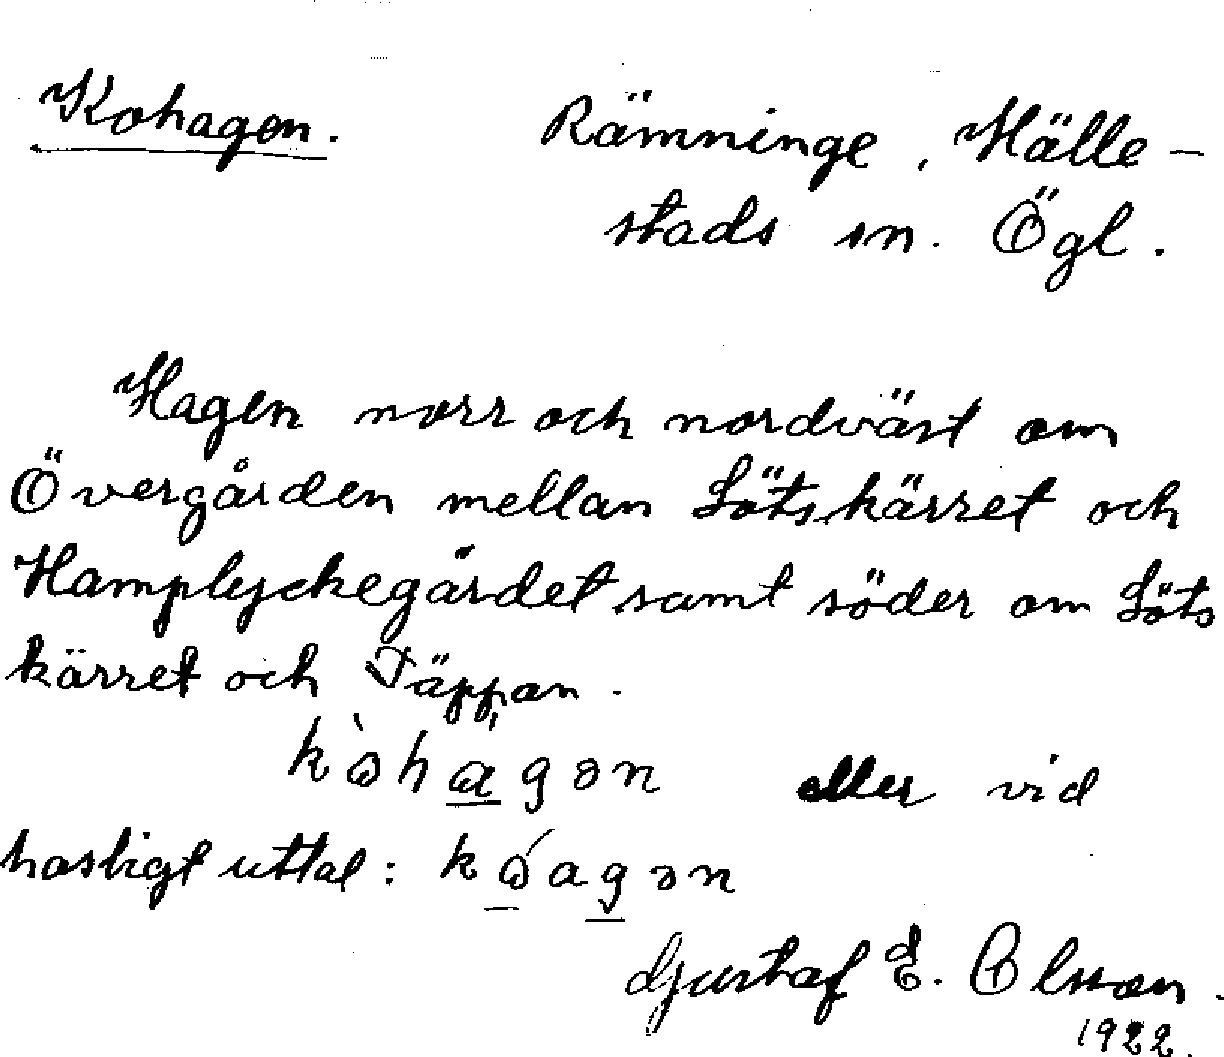 Kohagen. Rämninge, Hälle-
stads sn. Ögl.
Hagen norr och nordväst om
Övergården mellan Lötskärret och
Hamplyckegärdet samt söder om Löts
kärret och Täppan.
eller vid
hastigt uttal:
Gustaf E. Olsson.
1922.